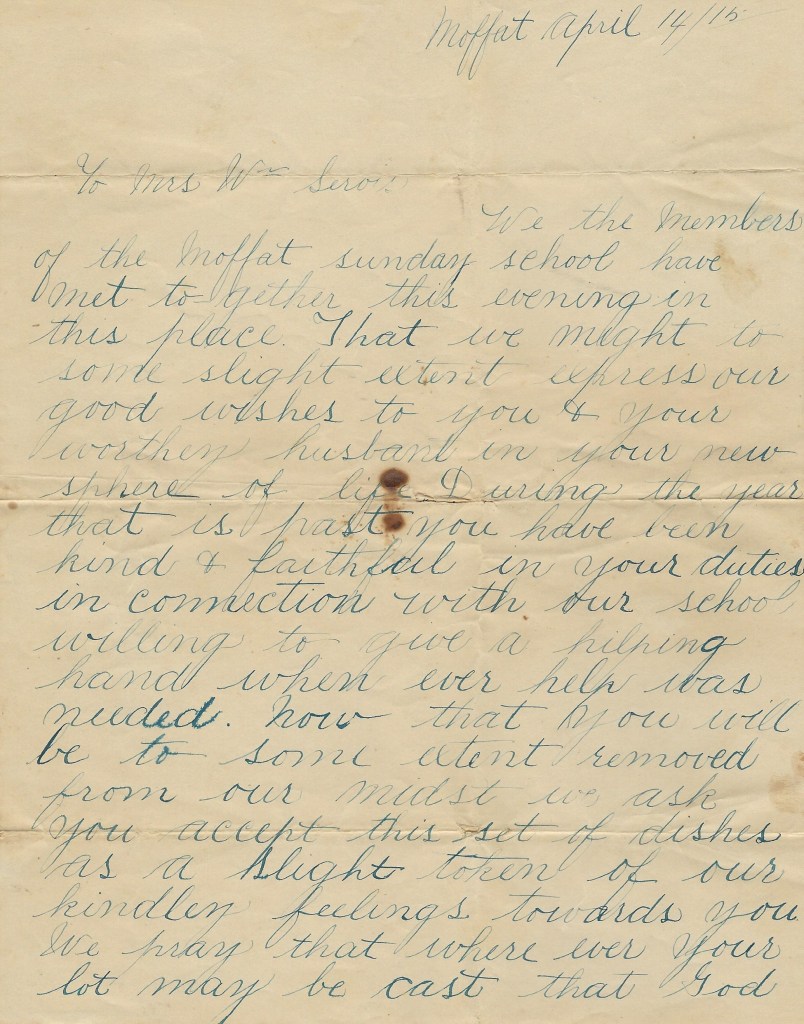 Moffat April 14/15
To Mrs Wm Servis
We the Members
of the Moffat sunday school have
met to-gether this evening in
this place. That we might to
some slight extent express our
good wishes to you & your
worthey husband in your new
sphere of life During the year
that is past you have been
kind & faithful in your duties
in connection with our school
willing to give a helping
hand when ever help was
needed. Now that you will
be to some extent removed
from our midst we ask
you accept this set of dishes
as a slight token of our
kindley feelings towards you
We pray that where ever your
lot may be cast that God